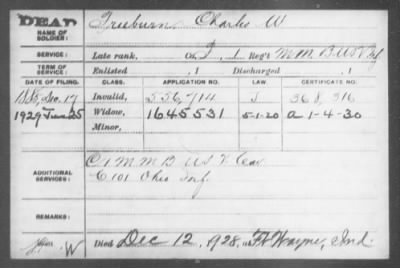 DEAD
NAME OF SOLDIER: Freeburn Charles W
SERVICE: Late rank, Co. I, 1 Reg't M M B US Vy
TERM OF SERVICE: Enlisted , 1 Discharged , 1
DATE OF FILING. CLASS. APPLICATION NO. LAW. CERTIFICATE NO.
Dec. 17 Invalid, 556,714 368,316
1929 June 25 Widow, 1645531 5-1-20 a 1-4-30
Minor,
ADDITIONAL SERVICES:
C 1 M M B US V Cav
C 101 Ohio Inf
REMARKS:
W Died Dec 12, 1928, at Ft Wayne, Ind.